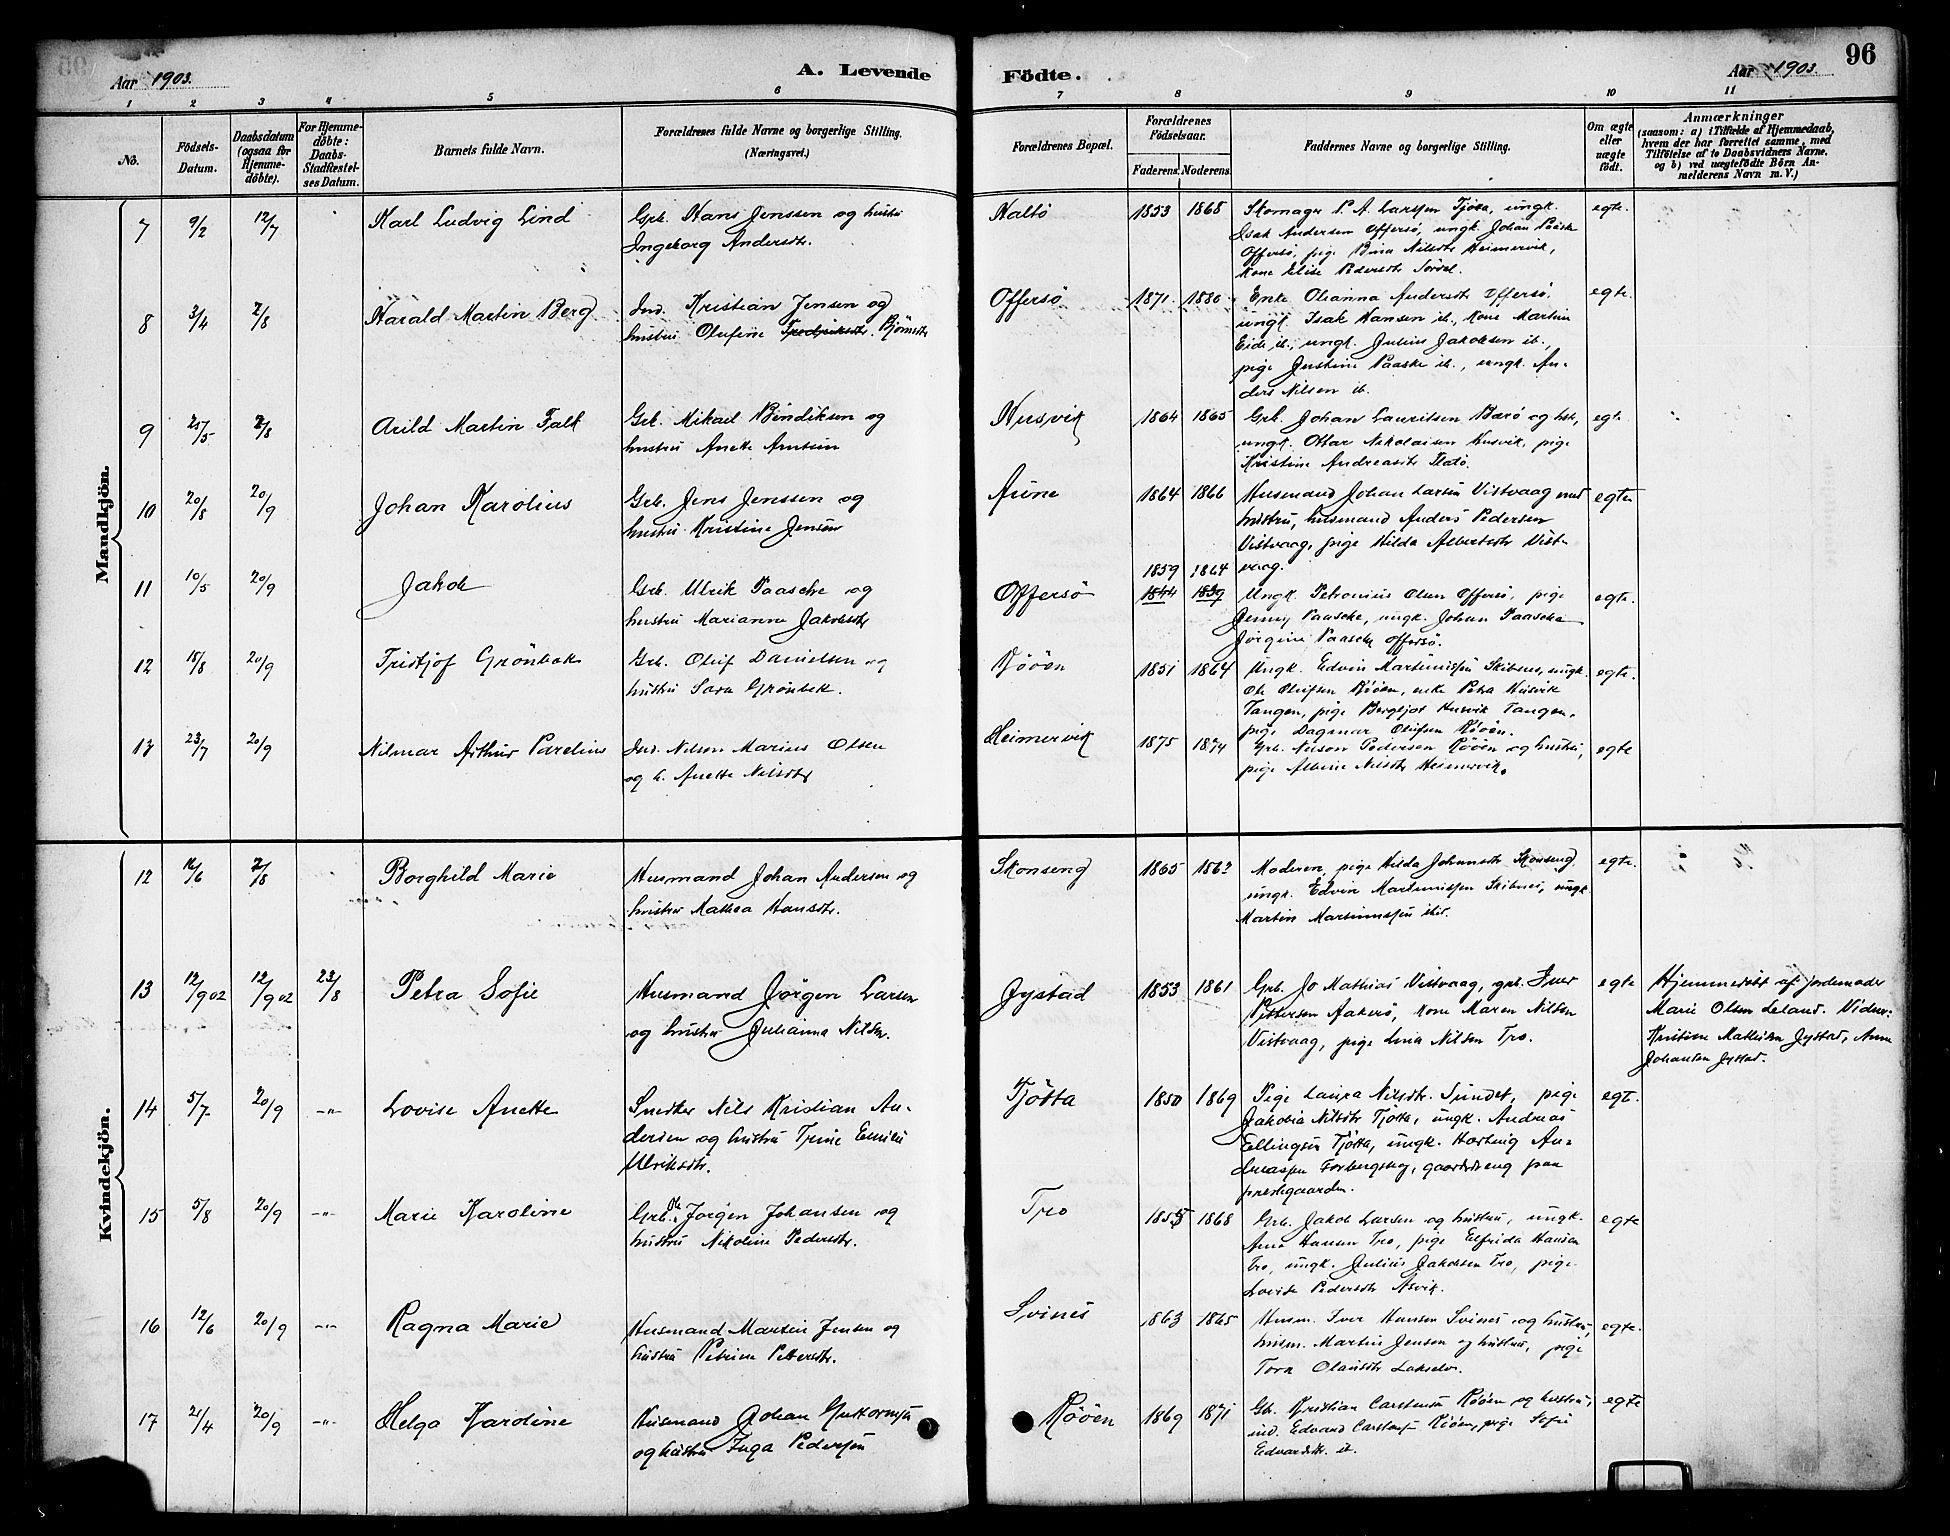 Aar 1903.
A. Levende
Födte.
Aar 1903.
96
1 2 3 4 5 6 7 8 9 10 11
No.
Födsels-
Datum.
Daabsdatum
(ogsaa for
Hjemme-
döbte).
For Hjemme-
döbte:
Daabs-
Stadfæstel-
ses Datum.
Barnets fulde Navn.
Forældrenes fulde Navne og borgerlige Stilling.
(Næringsvei.)
Forældrenes Bopæl.
Forældrenes
Födselsaar.
Faderens. Moderens.
Faddernes Navne og borgerlige Stilling.
Om ægte
eller
uægte
födt.
Anmærkninger
(saasom: a) i Tilfælde af Hjemmedaab,
hvem der har forrettet samme, med
Tilföielse af to Daabsvidners Navne,
og b) ved uægtefödte Börn An-
melderens Navn m. V.)
Mandkjön.
7 9/2 12/7 Karl Ludvig Lind
Grb. Hans Jenssen og hustru
Ingeborg Andersdtr.
1853 1868
Skomager P. A. Larssen Tjötta, ungk.
Isak Andersen Offersö, ungk. Johan Paaske
Offersö, pige Bina Nilsdtr Heimervik,
Kone Elise Pedersdtr
egte.
8 3/4 2/8 Harald Martin Berg
Ind. Kristian Jensen og
hustru Olufine Fredriksdtr. Bjömsdtr
Offersö 1871 1880
Enke Olianna Andersdtr Offersö,
ungk. Isak Hansen ib., Kone Martine
Eide ib., ungk. Julius Jakobsen ib.,
pige Justine Paaske ib., ungk. An-
ders Nilsen ib.
egte.
9 25/5 2/8 Arild Martin Falk
Grb. Mikael Bendiksen og
hustru Anette
Husvik 1864 1865
Grb. Johan Lauritsen Barö og hst,
ungk. Ottar Nikolaisen Husvik, pige
Kristine Andreasdtr
egte.
10 20/8 20/9 Johan Karolius
Grb. Jens Jenssen og
hustru Kristine Jensen
Aune 1864 1866
Husmand Johan Larsen Vistvaag med
hustru, husmand Anders Pedersen
Vistvaag, pige Hilda Albertsdtr Vist-
vaag.
egte
11 10/5 20/9 Jakob
Grb. Ulrik Paasche og
hustru Marianne Jakobsdtr
Offersö 1859 1864
1844 1839
Ungk. Petronius Olsen Offersö, pige
Jenny Paasche, ungk. Johan Paasche
Jörgine Paasche Offersö.
egte.
12 18/8 20/9 Fridtjof Grönbek
Grb. Oluf Danielsen og
hustru Sara Grönbek.
Rööen 1851 1864
Ungk. Edvin Martinussen Skibnes, ungk.
Ole Olufsen Rööen, enke Petra Husvik
Tangen, pige Bergljot Husvik Tangen,
pige Dagmar Olufsen Rööen.
egte.
13 23/7 20/9 Hilmar Arthur Parelius
Ind. Nilson Marius Olsen
og h. Anette Nilsdtr
Heimervik 1875 1874
Grb. Nilson Pedersen Rööen og hustru,
pige Albine Nilsdtr Heimervik.
egte
Kvindekjön.
12 16/6 2/8 Borghild Marie
Husmand Johan Andersen og
hustru Mathea Hansdtr.
Skonseng 1865 1862
Moderen, pige Hilda Johansdtr Skonseng,
ungk. Edvin Martinussen Skibnes, ungk.
Martin Martinussen ibid.
egte.
13 12/9 02 12/9 02 23/8 Petra Sofie
Husmand Jörgen Larsen
og hustru Julianna Nilsdtr.
Jystad 1853 1861
Grb. Jo Mathias Vistvaag, grb. Iver
Pettersen Aakerö, kone Maren Nilsen
Vistvaag, pige Lina Nilsen Tro.
egte
Hjemmedöbt af jordemoder
Marie Olsen Leland. Vidner:
Kristian Mathisen Jystad, Anne
Johansen Jystad.
14 5/7 20/9 -"- Lovise Anette
Snedker Nils Kristian An-
dersen og hustru Trine Emilie
Ulriksdtr.
Tjötta 1850 1869
Pige Laura Nilsdtr. Sundet, pige
Jakobia Nilsdtr Tjötta, ungk. Andreas
Ellingsen Tjötta, ungk. Hartvig An-
dreassen Forbergskog, gaardsdreng paa
prestegaarden.
egt.
15 5/8 20/9 -"- Marie Karoline
Grb. Ole Jörgen Johansen og
hustru Nikoline Pedersdtr.
Tro 1855 1868
Grb. Jakob Larsen og hustru, ungk.
Arne Hansen Tro, pige Elfrida Hansen
Tro, ungk. Julius Jakobsen Tro, pige
Lovise Pedersdtr Asvik.
egte
16 12/6 20/9 -"- Ragna Marie
Husmand Martin Jensen og
hustru Petrine Pettersdtr.
Svines 1863 1865
Husm. Iver Hansen Svines og hustru,
husm. Martin Jensen og hustru, pige
Tora Olausdtr Lakselv.
egte.
17 21/4 20/9 -"- Helga Karoline
Husmand Johan Guttormsen
og hustru Inga Pedersen
Rööen 1869 1871
Grb. Kristian Carstensen Rööen og hustru,
ind. Edvard Carstensen Rööen, pige Sofie
Edvardsdtr. ib.
egte